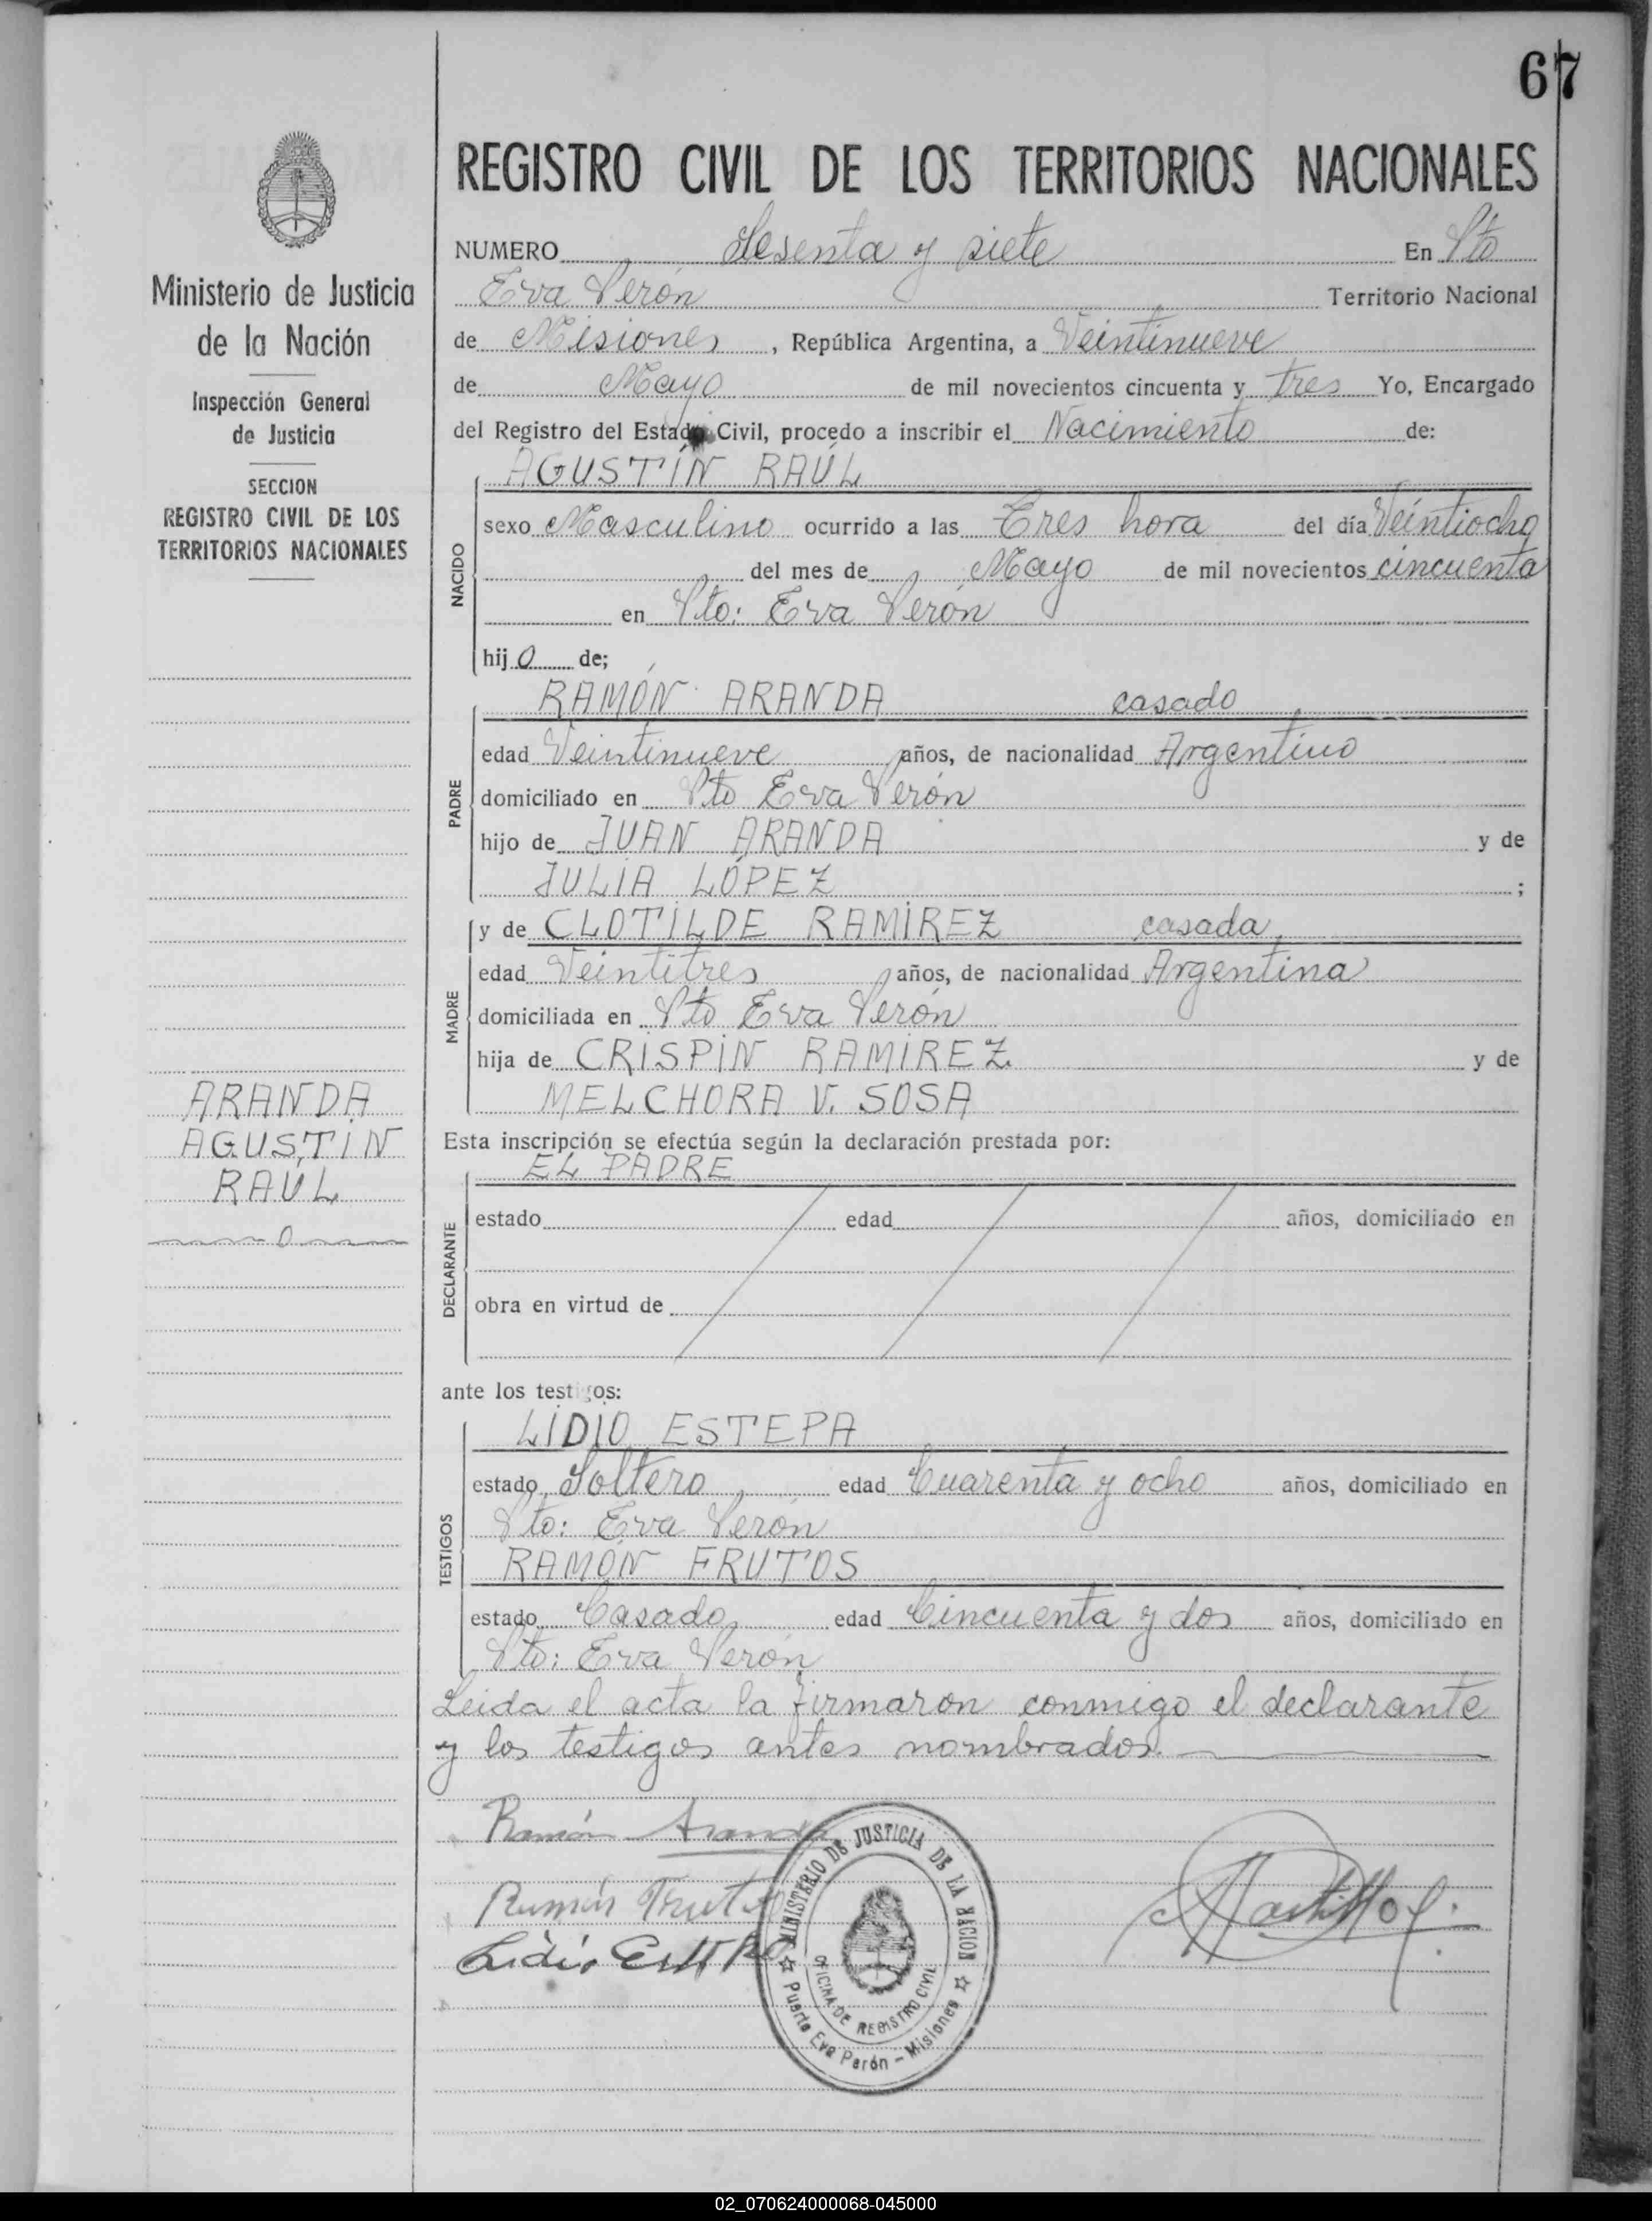 67
REGISTRO CIVIL DE LOS TERRITORIOS NACIONALES
Ministerio de Justicia
de la Nación
Inspección General
de Justicia
SECCION
REGISTRO CIVIL DE LOS
TERRITORIOS NACIONALES
ARANDA
AGUSTIN
RAÚL
NUMERO Sesenta y siete En Pto
Eva Perón Territorio Nacional
de Misiones, República Argentina, a Veintinueve
de Mayo de mil novecientos cincuenta y tres Yo, Encargado
del Registro del Estado Civil, procedo a inscribir el Nacimiento de:
AGUSTÍN RAÚL
NACIDO
sexo Masculino ocurrido a las Tres hora del día Veintiocho
del mes de Mayo de mil novecientos cincuenta
en Pto: Eva Perón
hijo de;
RAMÓN ARANDA casado
PADRE
edad Veintinueve años, de nacionalidad Argentino
domiciliado en Pto Eva Perón
hijo de JUAN ARANDA y de
JULIA LÓPEZ ;
y de CLOTILDE RAMÍREZ casada
MADRE
edad Veintitres años, de nacionalidad Argentina
domiciliada en Pto Eva Perón
hija de CRISPIN RAMIREZ y de
MELCHORA V. SOSA
Esta inscripción se efectúa según la declaración prestada por:
EL PADRE
DECLARANTE
estado edad años, domiciliado en
obra en virtud de
ante los testigos:
LIDIO ESTEPA
TESTIGOS
estado Soltero edad Cuarenta y ocho años, domiciliado en
Pto: Eva Perón
RAMÓN FRUTOS
estado Casado edad Cincuenta y dos años, domiciliado en
Pto: Eva Perón
Leida el acta la firmaron conmigo el declarante
y los testigos antes nombrados.
Ramón Aranda
Ramón Frutos
Lidio Estepa
MINISTERIO DE JUSTICIA DE LA NACION
OFICINA DE REGISTRO CIVIL
Puerto Eva Perón - Misiones
02_070624000068-045000